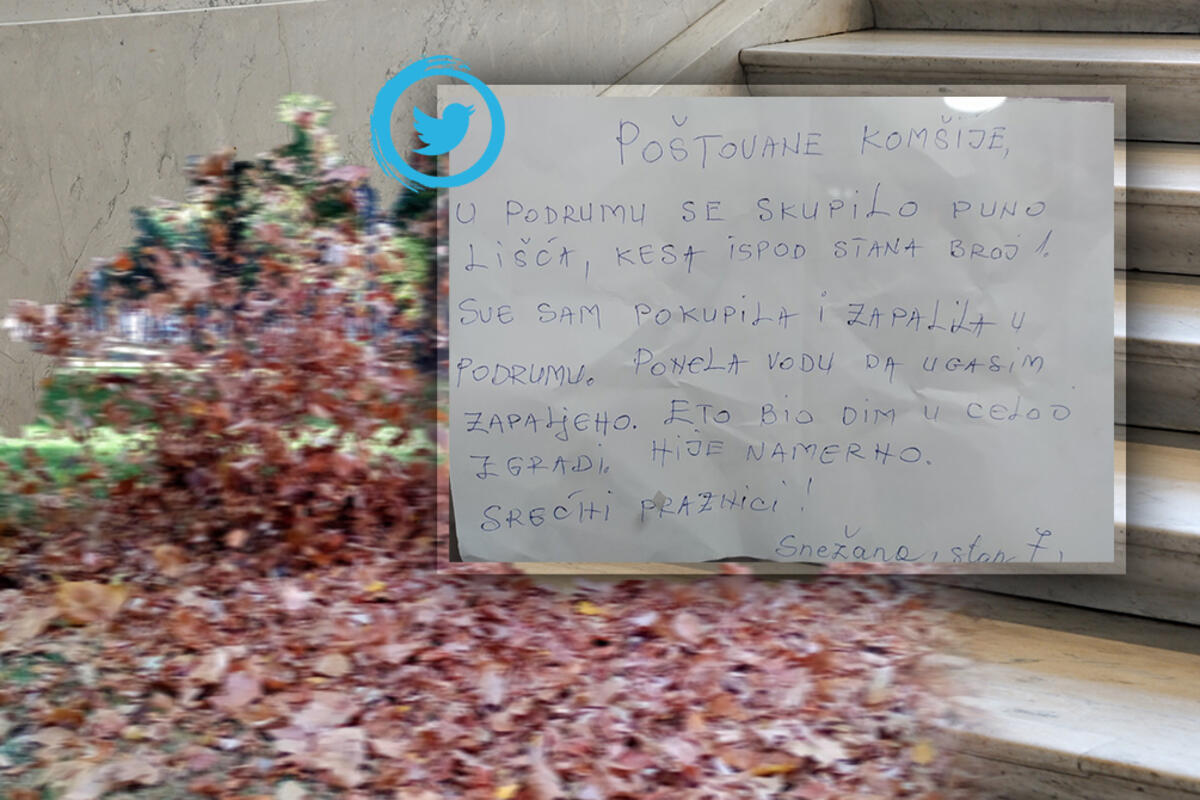 POŠTOVANE KOMŠIJE,
U PODRUMU SE SKUPILO PUNO
LIŠĆA, KESA ISPOD STANA BROJ 1.
SVE SAM POKUPILA I ZAPALILA U
PODRUMU. PONELA VODU DA UGASIM
ZAPALjEHO. ETO BIO DIM U CELOJ
ZGRADI. HIJE NAMERHO.
SREĆHI PRAZHICI!
Snežana, stan 7.